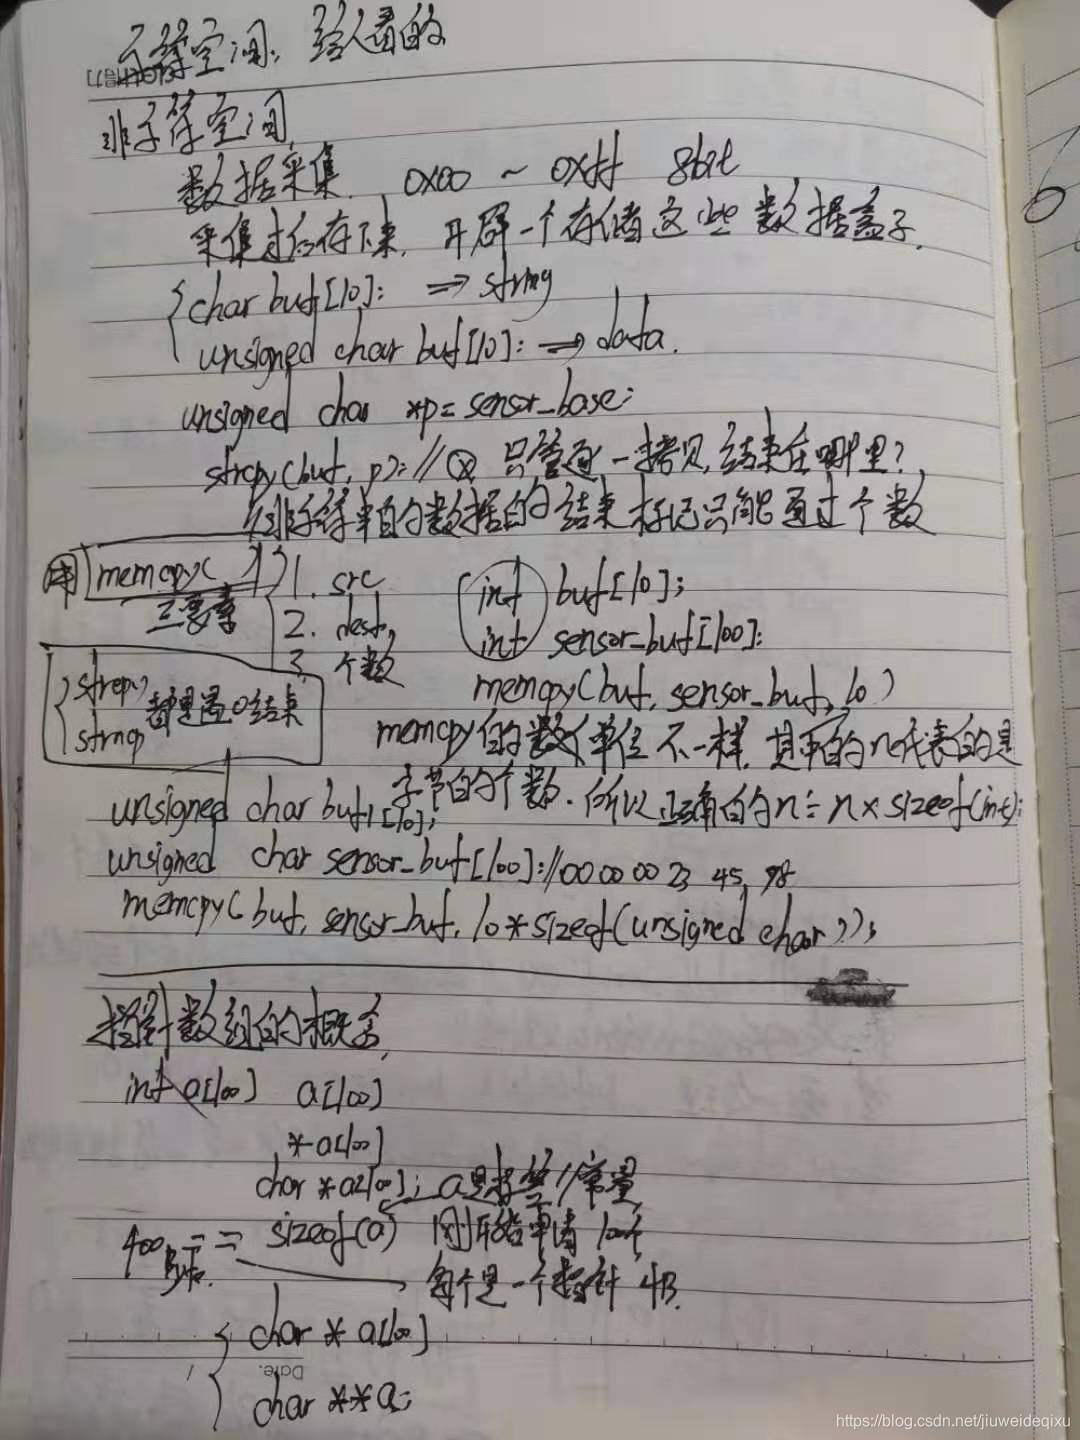 字符空间: 给人看的
非字符空间
数据采集. 0x00 ~ 0xff 8bit
采集 存下来, 开辟一个存储这些数据盒子.
char buf[10]; => string
unsigned char buf[10]; => data.
unsigned char *p = sensor_base;
strcpy(buf, p); // 只管逐一拷贝, 结束在哪里?
非字符串的数据的结束标记只能通过个数
用 memcpy( )
三要素
1. src
2. dest,
3. 个数
int buf[10];
int sensor_buf[100];
memcpy(buf, sensor_buf, 10)
strcpy
strncp
都是遇0结束
memcpy的 单位不一样, 其中的n代表的是
字节的个数. 所以正确的n = n x sizeof(int);
unsigned char buf1[10];
unsigned char sensor_buf[100]; //00 00 00 23 45 98
memcpy(buf, sensor_buf, 10*sizeof(unsigned char));
指针数组的概念
int a[100] a[100]
* a[100]
char *a[100]; a是指 //常量
400 Byte. == sizeof(a) 刚开始申请100个
每个是一个指针 4B.
char * a[100]
Date. /
char **a;
https://blog.csdn.net/jiuweideqixu